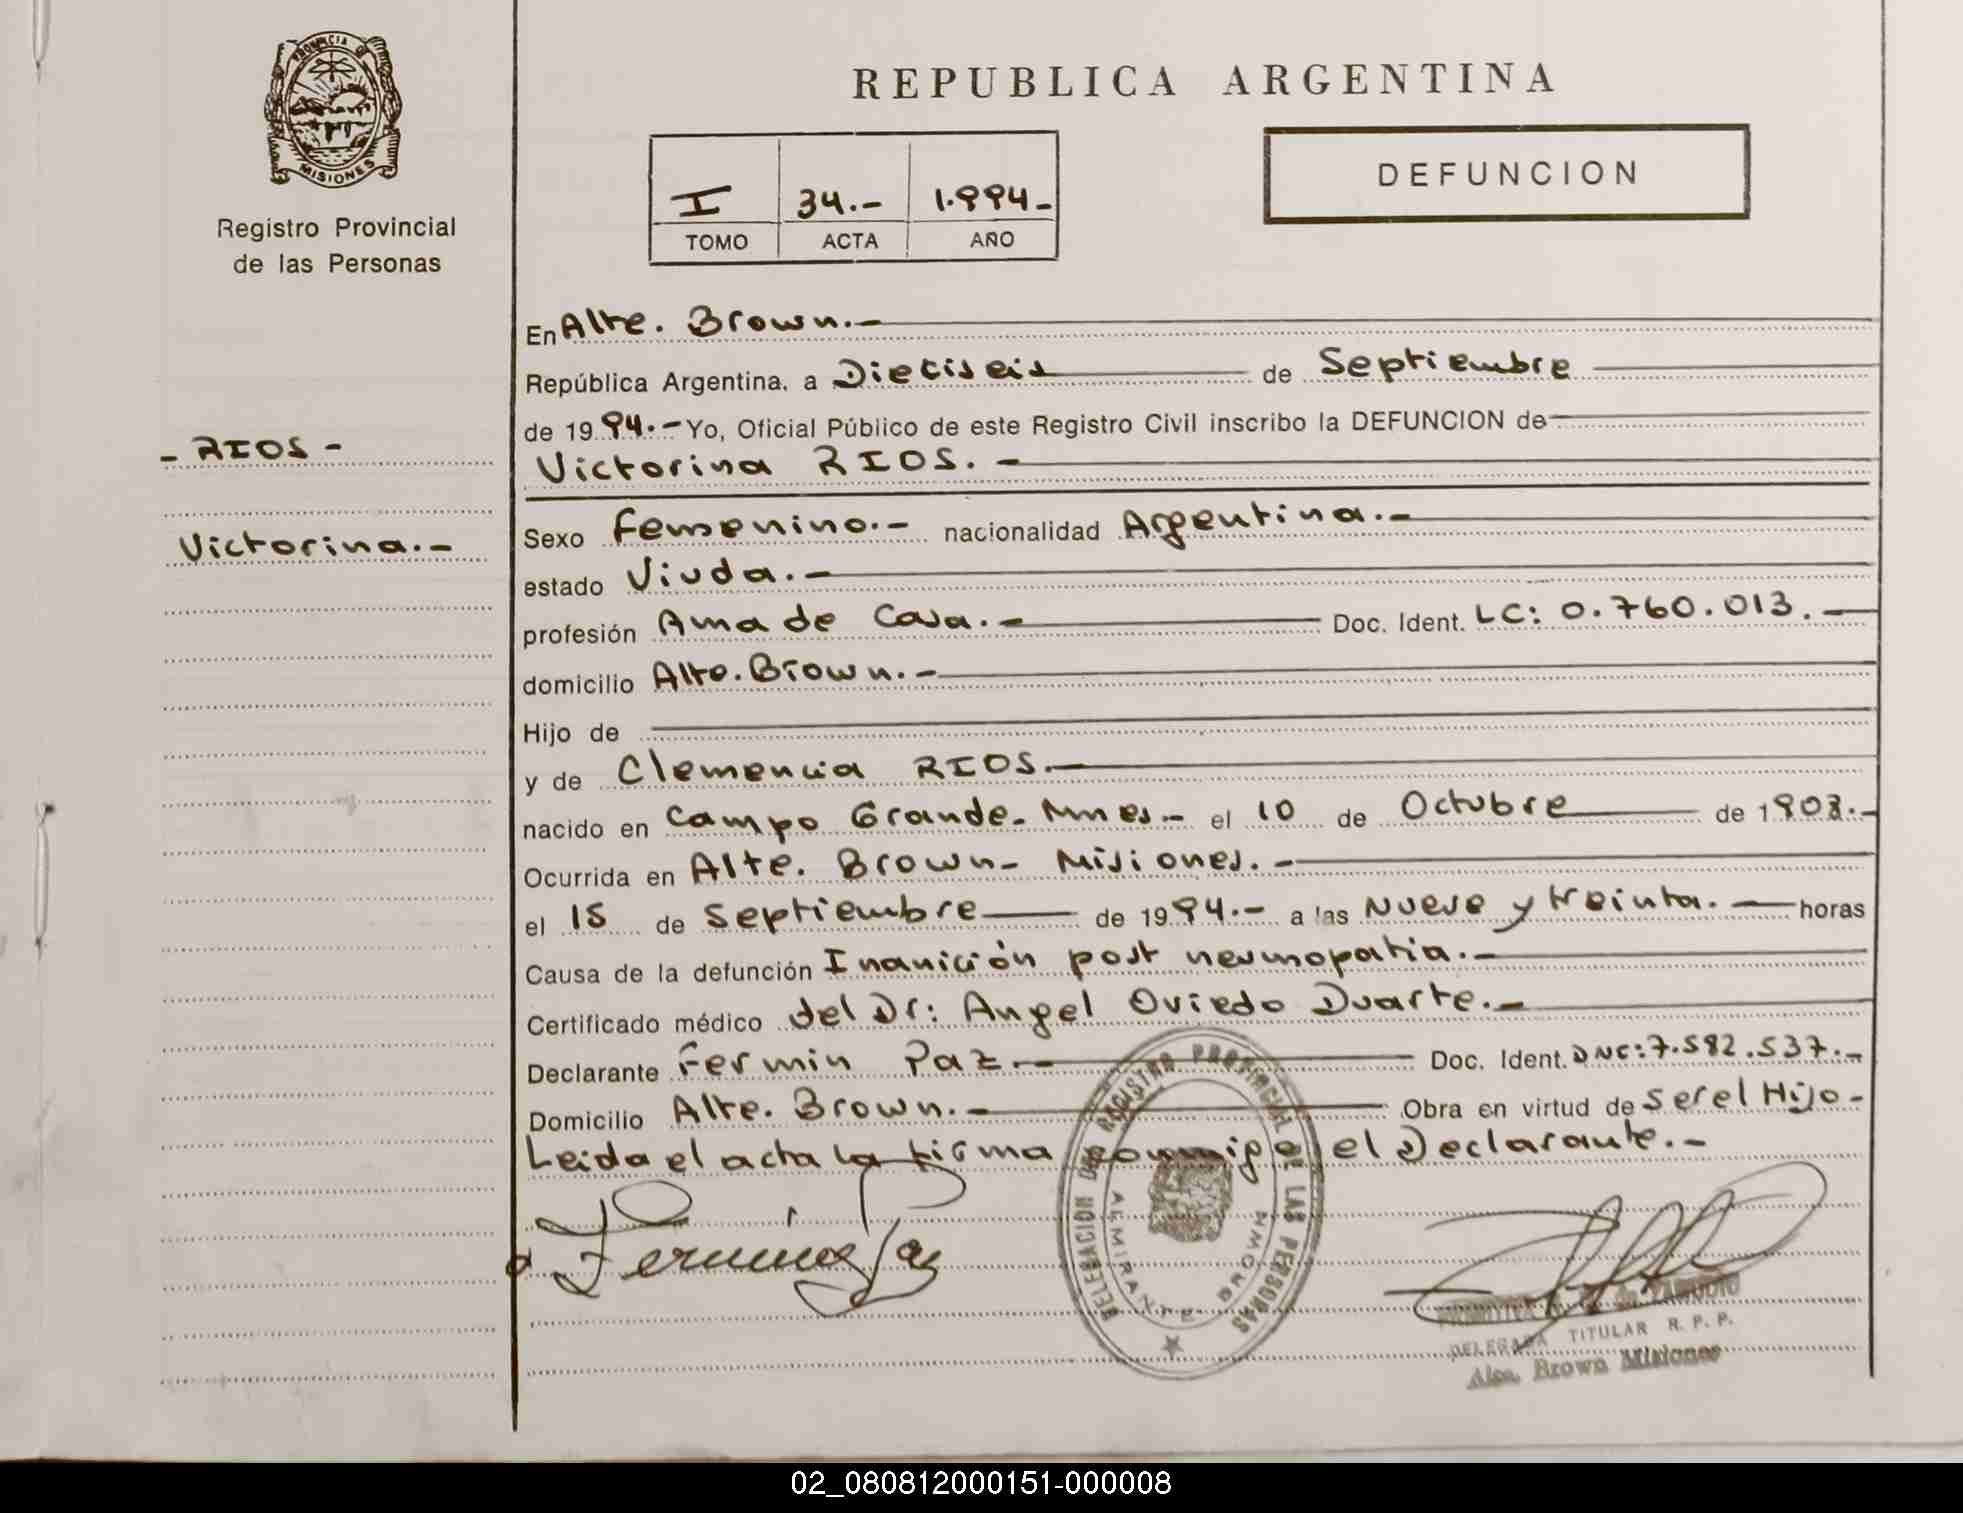 PROVINCIA DE
MISIONES
Registro Provincial
de las Personas
REPUBLICA ARGENTINA
I 34.- 1.994-
TOMO ACTA AÑO
DEFUNCION
- RIOS -
Victorina.-
En Alte. Brown.-
República Argentina, a Dieciseis de Septiembre
de 1994.- Yo, Oficial Público de este Registro Civil inscribo la DEFUNCION de
Victorina RIOS.-
Sexo Femenino.- nacionalidad Argentina.-
estado Viuda.-
profesión Ama de Casa.- Doc. Ident. LC: 0.760.013.-
domicilio Alte. Brown.-
Hijo de
y de Clemencia RIOS.-
nacido en Campo Grande- Mnes.- el 10 de Octubre de 1903.-
Ocurrida en Alte. Brown- Misiones.-
el 15 de Septiembre de 1994.- a las Nueve y treinta.- horas
Causa de la defunción Inanición post neumopatia.-
Certificado médico del Dr: Angel Oviedo Duarte.-
Declarante Fermin Paz.- Doc. Ident. DNI: 7.582.537.-
Domicilio Alte. Brown.- Obra en virtud de Ser el Hijo-
Leida el acta la firma conmigo el Declarante.-
Fermin Paz
DELEGACION DEL REGISTRO PROVINCIAL DE LAS PERSONAS
ALMIRANTE BROWN
DELEGADA TITULAR R. P. P.
Alte. Brown Misiones
02_080812000151-000008